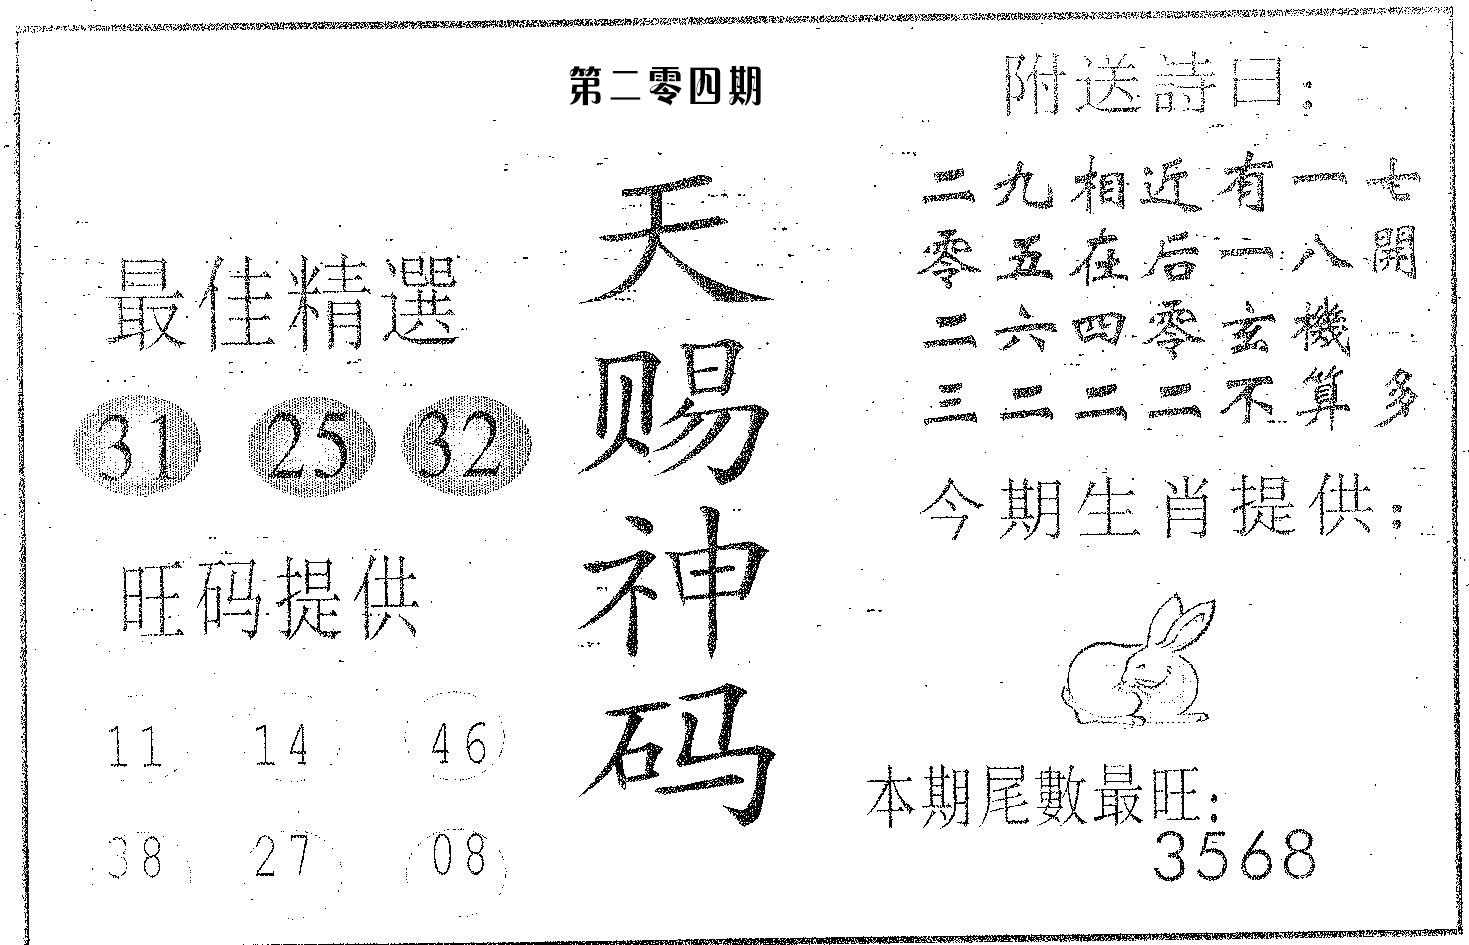 第二零四期
天赐神码
最佳精選
31 25 32
旺码提供
11 14 46
38 27 08
附送詩曰：
二九相近有一七
零五在后一八開
二六四零玄機
三二二二不算多
今期生肖提供：
本期尾數最旺：
3568